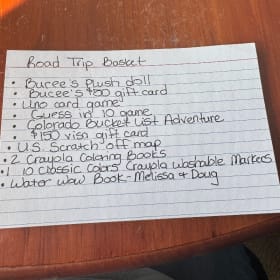 Road Trip Basket
• Bucee's Plush doll
• Bucee's $50 gift card
• Uno card game
• Guess in 10 game
• Colorado Bucket List Adventure
• $150 visa gift card
• U.S. Scratch off map
• 2 Crayola Coloring Books
• 1 10 Classic Colors Crayola Washable Markers
• Water Wow Book - Melissa & Doug